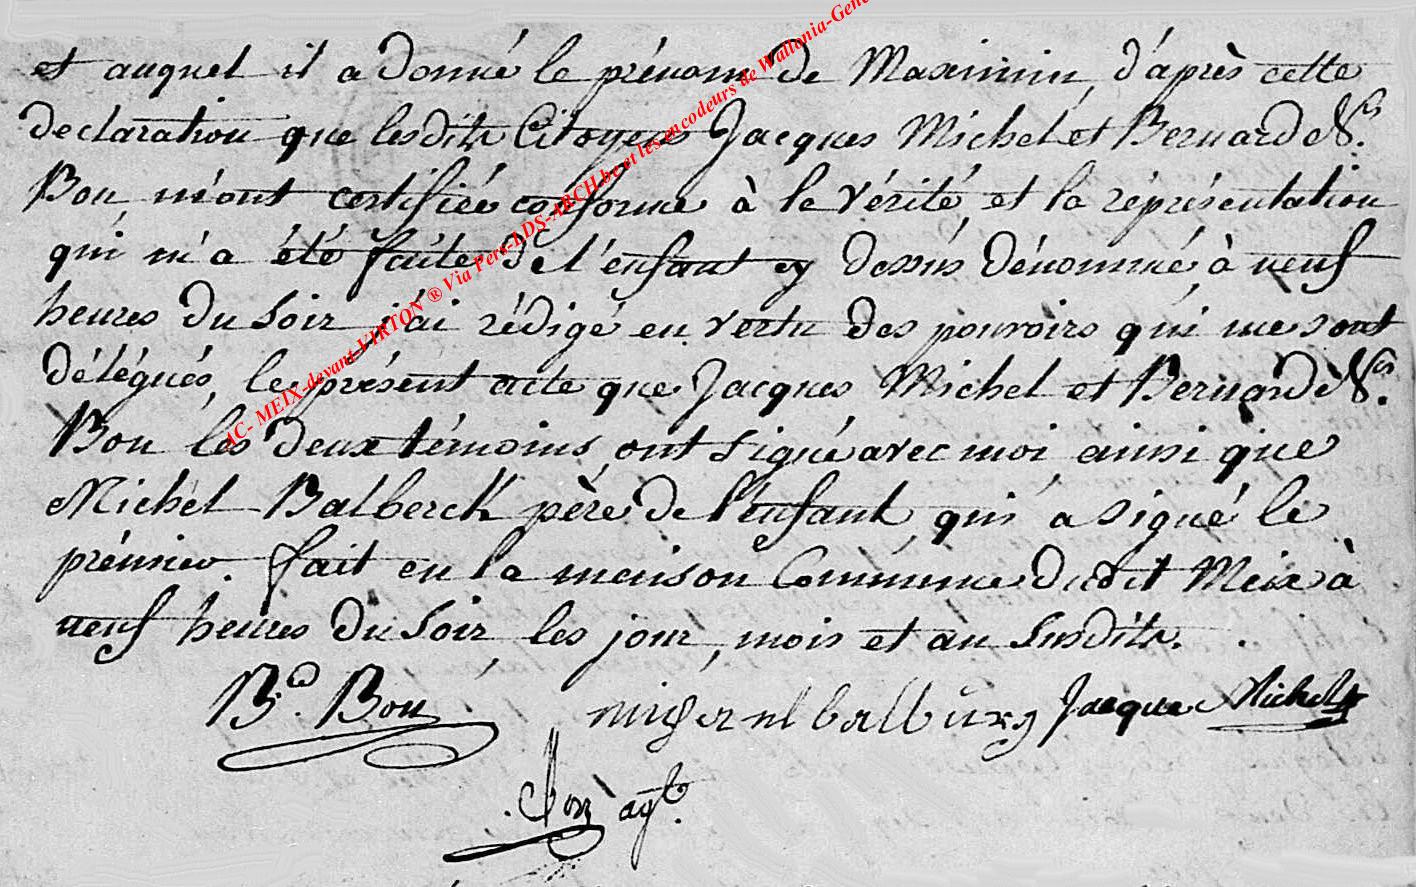 et auquel il a donné le prénom de Maximin, d'après cette
declaration que lesdits Citoyens Jacques Michel et Bernard
Bon, m'ont certifiée conforme à la vérité et la réprésentation
qui m'a été faite de l'enfant cy dessus dénommé, à neuf
heures du soir j'ai rédigé en vertu des pouvoirs qui me sont
délégués, le présent acte que Jacques Michel et Bernard
Bon les deux témoins, ont signé avec moi ainsi que
Michel Balberck père de l'enfant, qui a signé le
prémier. fait en la maison Commune dudit Meix à
neuf heures du soir, les jour, mois et an susdits.
Bd. Bon Jacque Michel
agt.
AC- MEIX-devant-VIRTON ® Via Pers-LDS-ARCH.be et les encodeurs de Wallonia-Gene